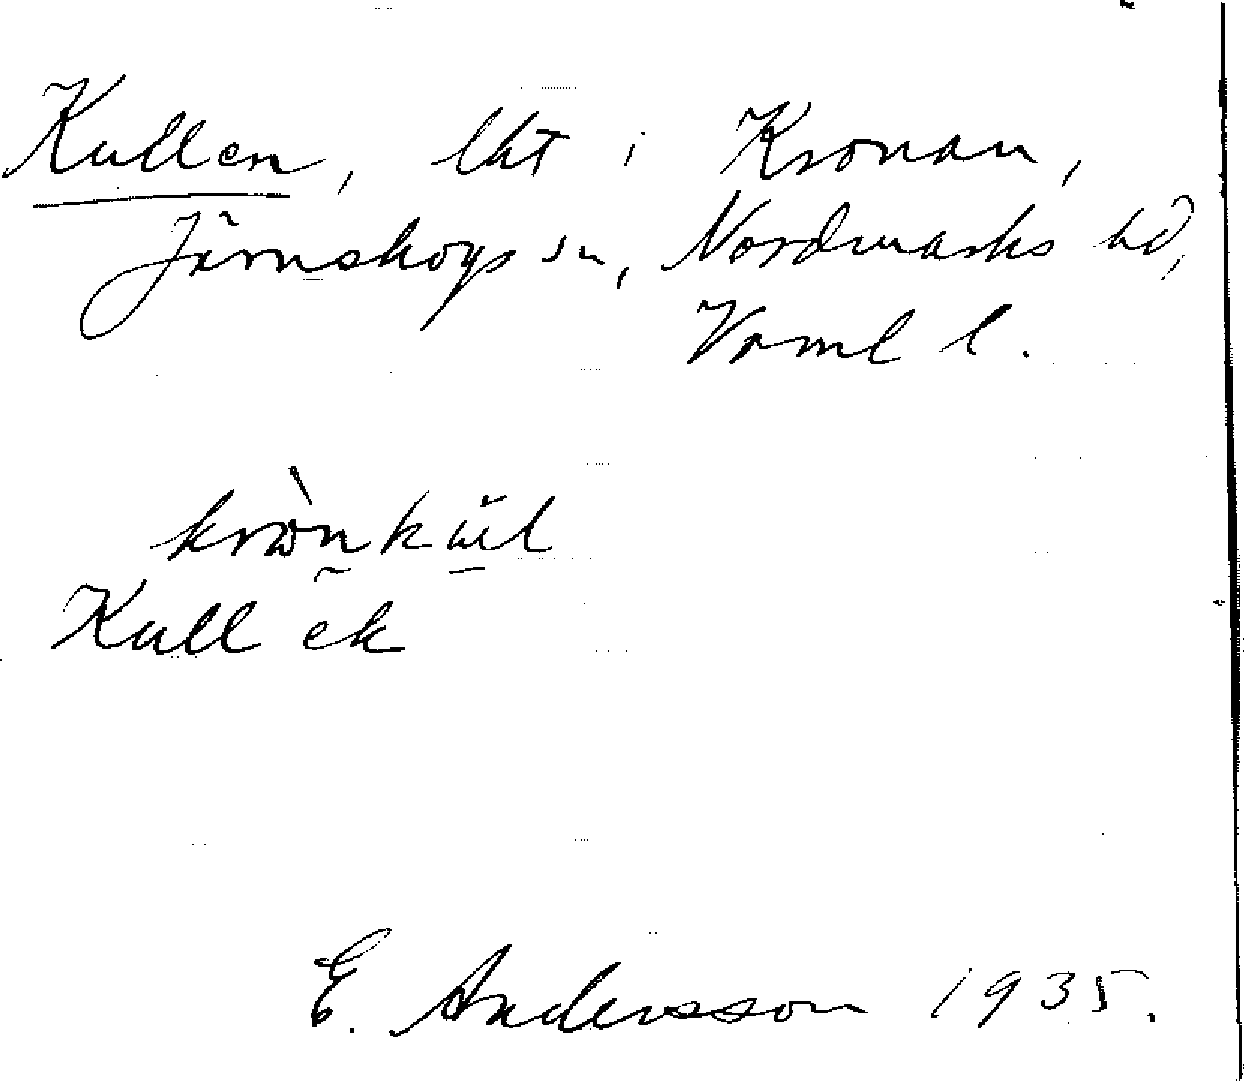 Kullen, lht i Kronan,
Järnskogs sn, Nordmarks hd,
Vrml l.
krònkul
Kull ek
E. Andersson 1935.